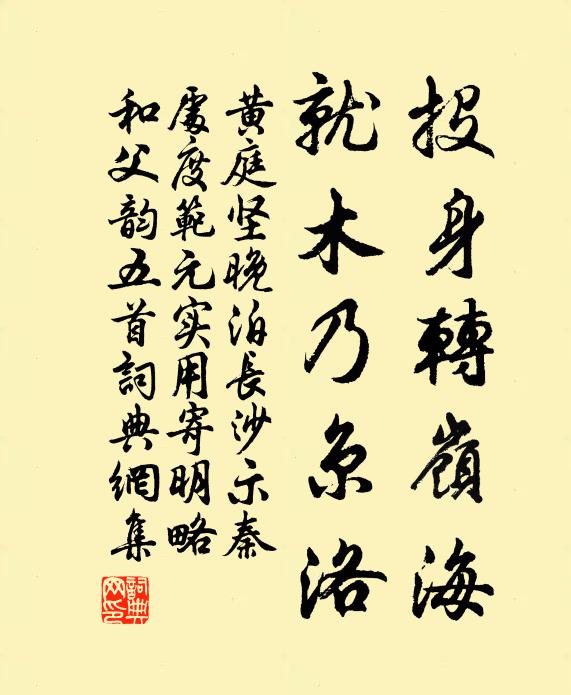 投身轉嶺海
就木乃京洛
黄庭坚晚泊長沙示秦
處度範元实用寄明略
和父韵五首詞典網集
詞典網印